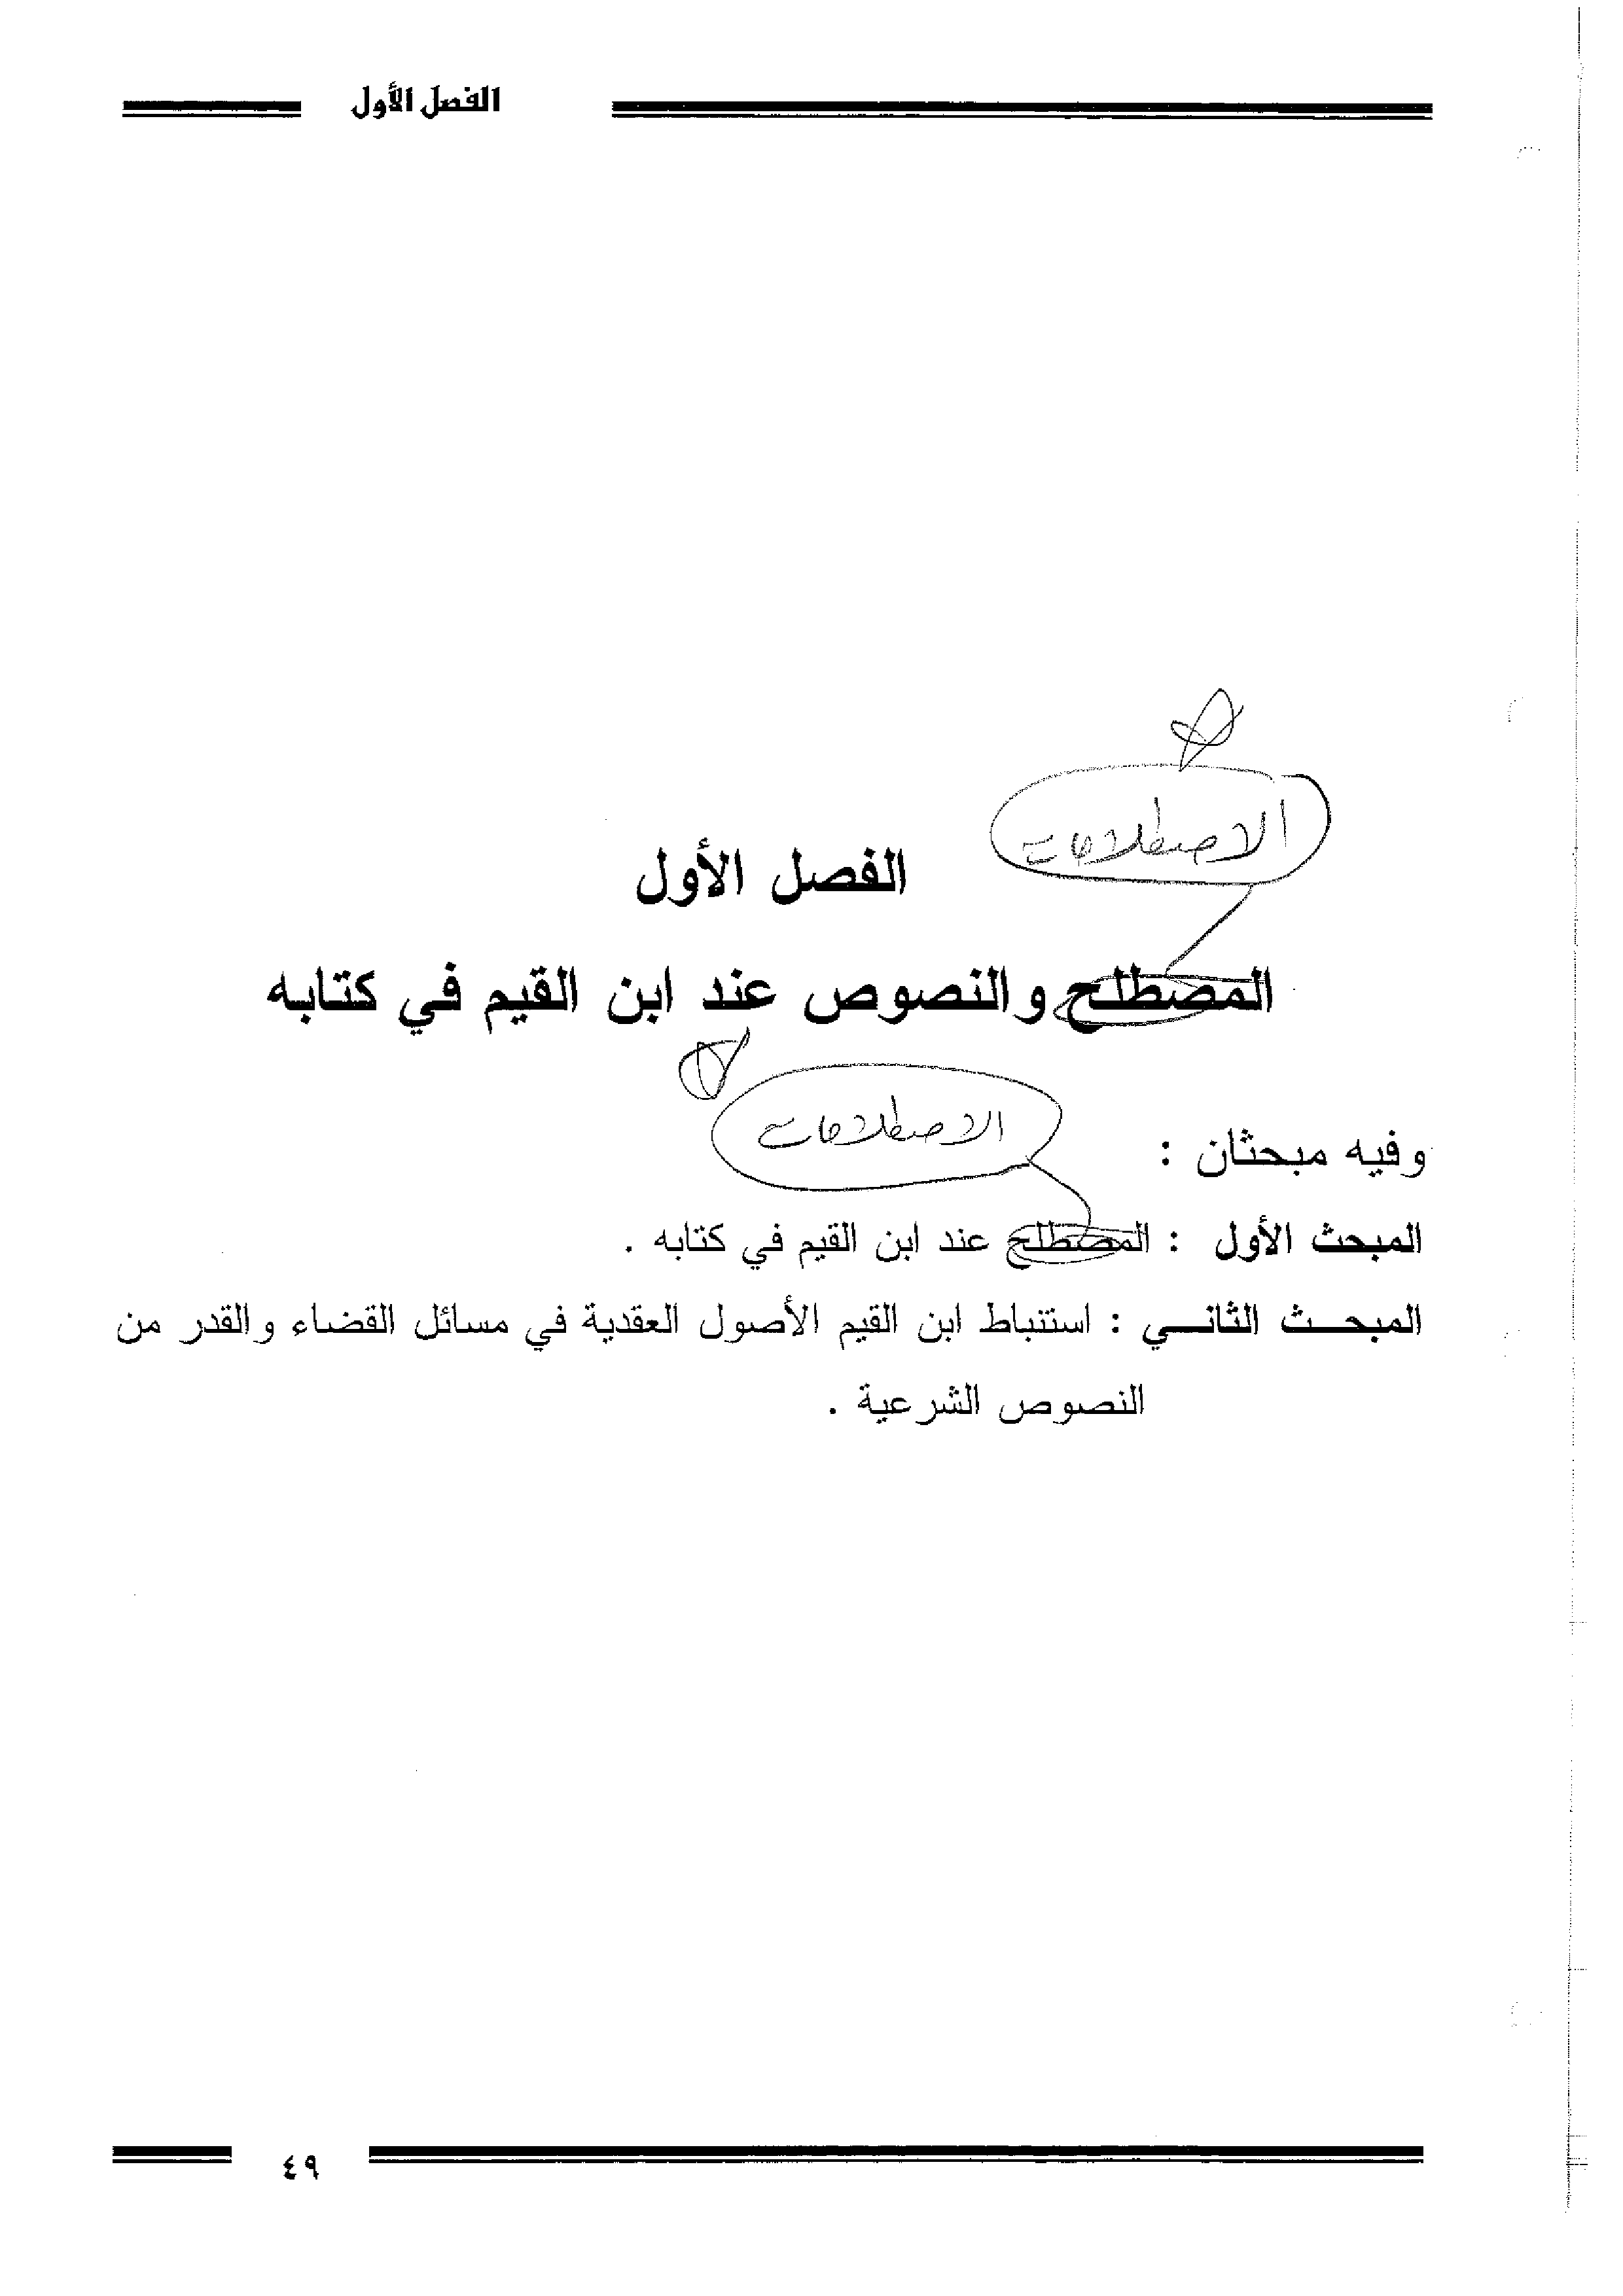 الفصل الأول
الاصطلاحات
الفصل الأول
المصطلح والنصوص عند ابن القيم في كتابه
الاصطلاحات
وفيه مبحثان :
المبحث الأول : المصطلح عند ابن القيم في كتابه .
المبحــث الثانــي : استنباط ابن القيم الأصول العقدية في مسائل القضاء والقدر من
النصوص الشرعية .
٤٩